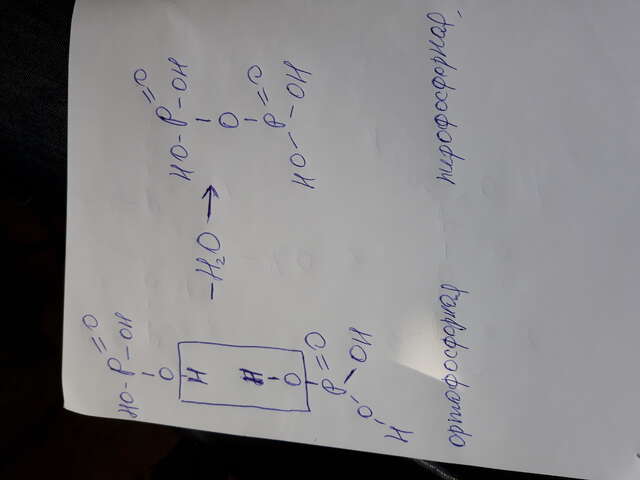 HO-P=O
-OH
O
H
H
O
P=O
O OH
H
-H₂O →
HO-P=O
-OH
O
P=O
HO OH
ортофосфорная
пирофосфорная